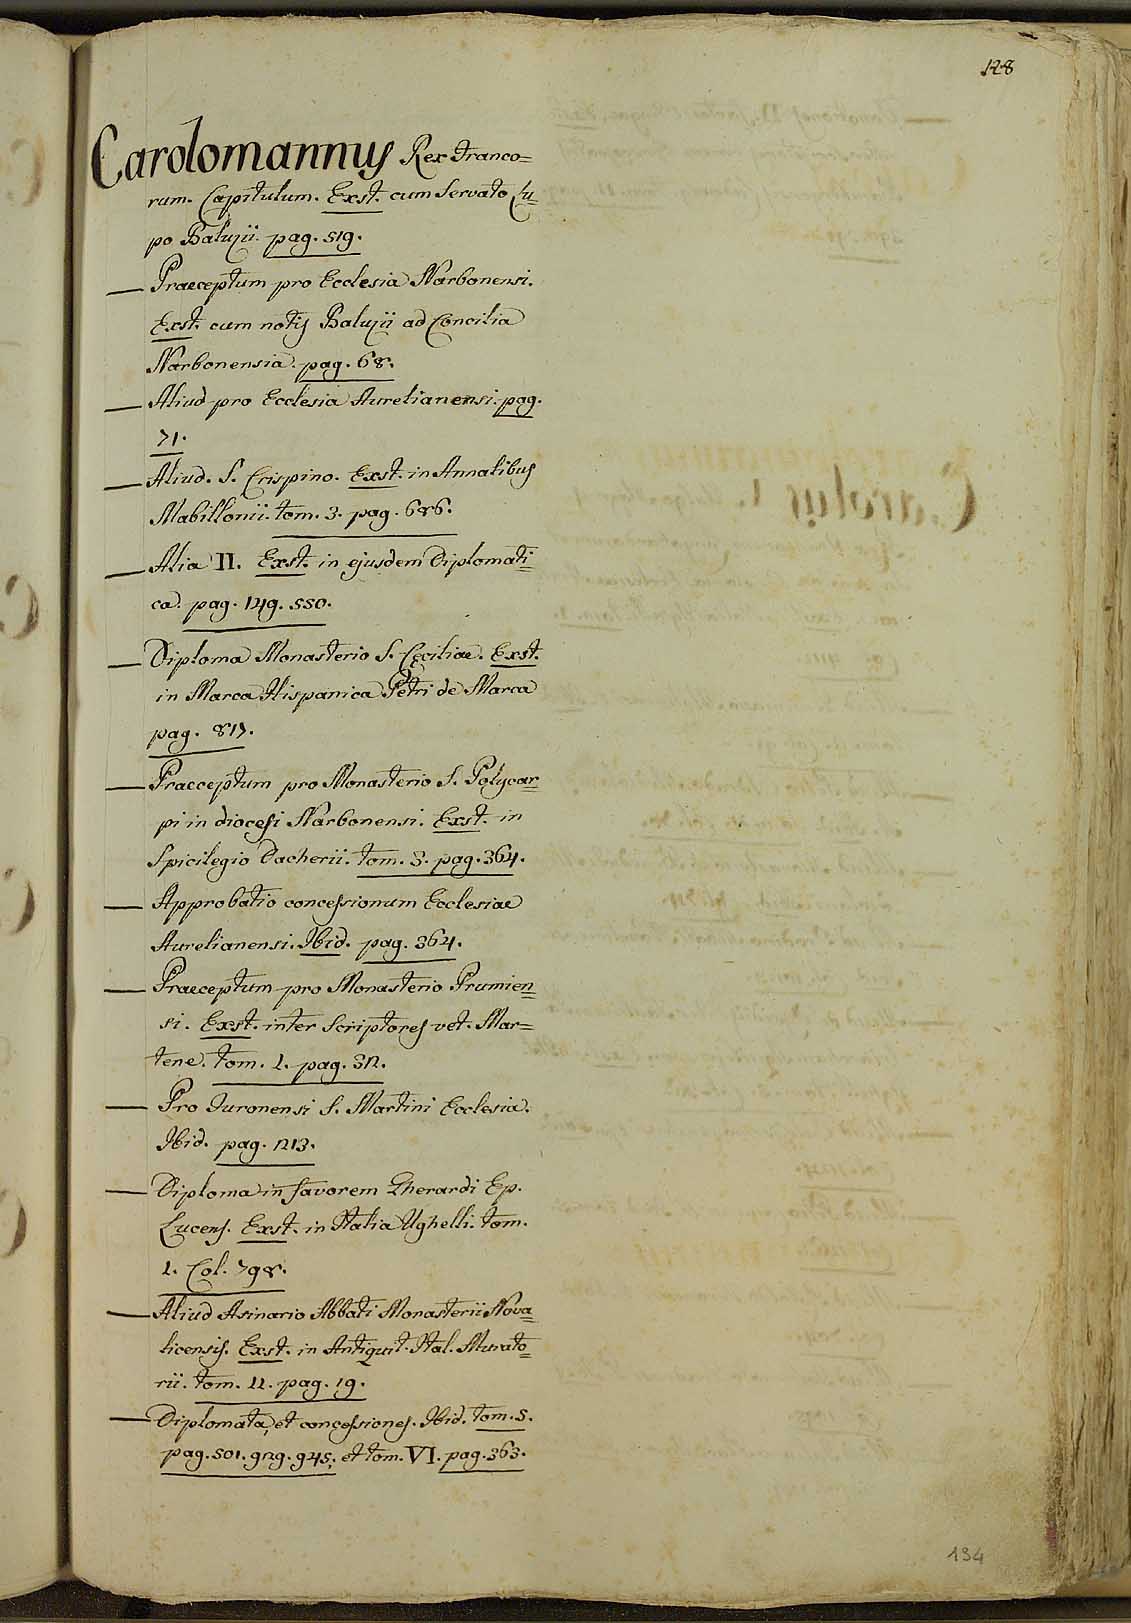 128
Carolomannus Rex Franco=
rum. Capitulum. Exst. cum Servato Lu=
po Baluzii. pag. 519.
— Praeceptum pro Ecclesia Narbonensi.
Exst. cum notis Baluzii ad Concilia
Narbonensia. pag. 68.
— Aliud pro Ecclesia Aurelianensi. pag.
71.
— Aliud. S. Crispino. Exst. in Annalibus
Mabillonii. tom. 3. pag. 686.
— Alia II. Exst. in ejusdem Diplomati=
ca. pag. 149. 550.
— Diploma Monasterio S. Cęciliae. Exst.
in Marca Hispanica Petri de Marca
pag. 817.
— Praeceptum pro Monasterio S. Polycar=
pi in diocesi Narbonensi. Exst. in
Spicilegio Dacherii. tom. 3. pag. 364.
— Approbatio concessionum Ecclesiae
Aurelianensi. Ibid. pag. 364.
— Praeceptum pro Monasterio Prumien=
si. Exst. inter Scriptores vet. Mar=
tene. tom. 1. pag. 312.
— Pro Turonensi S. Martini Ecclesia.
Ibid. pag. 1213.
— Diploma in favorem Gherardi Ep.
Lucens. Exst. in Italia Ughelli. tom.
1. Col. 798.
— Aliud Asinario Abbati Monasterii Nova=
licensis. Exst. in Antiquit. Ital. Murato=
rii. tom. II. pag. 19.
— Diplomata, et concessiones. Ibid. tom. 5.
pag. 501. 929. 945. et tom. VI. pag. 363.
134